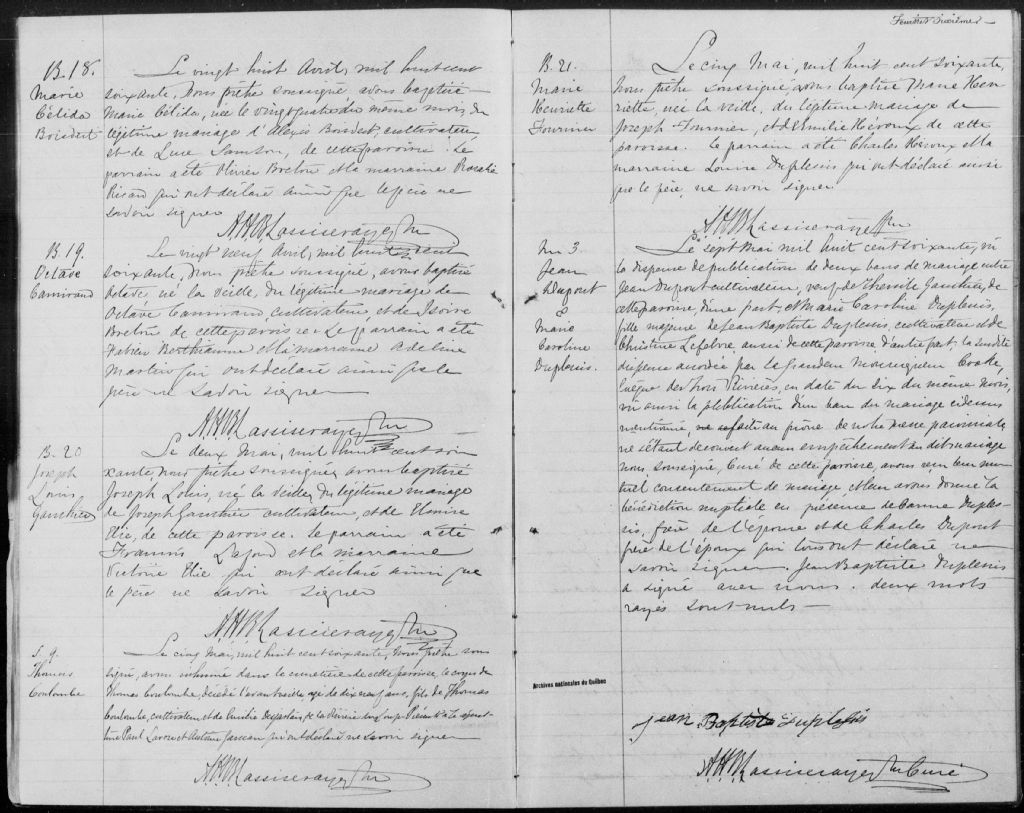 B. 18.
Marie
Célida
Boisvert
Le vingt huit Avril, mil huit cent
soixante, Nous prêtre soussigné avons baptisé
Marie Célida, née le vingt quatre du même mois, du
légitime mariage d'Alexis Boisvert, cultivateur,
et de Luce Samson, de cette paroisse. Le
parrain a été Olivier Breton et la marraine Rosalie
Ricard qui ont déclaré ainsi que le père ne
savoir signer
B. 19.
Octave
Camirand
Le vingt neuf Avril, mil huit cent
soixante, Nous prêtre soussigné, avons baptisé
Octave, né la veille, du légitime mariage de
Octave Camirand cultivateur, et de Isoire
Breton de cette paroisse. Le parrain a été
Fabien Berthiaume et la marraine Adeline
Martin qui ont déclaré ainsi que le
père ne savoir signer
B. 20
Joseph
Louis
Gauthier
Le deux Mai, mil huit cent soix
xante, nous prêtre soussigné, avons baptisé
Joseph Louis, né la veille, du légitime mariage
de Joseph Gauthier cultivateur, et de
Elie, de cette paroisse. Le parrain a été
Lafond et la marraine
Victoire Elie qui ont déclaré ainsi que
le père ne savoir signer
S. 9.
Thomas
Coulombe
Le cinq Mai, mil huit cent soixante, Nous prêtre sous
signé, avons inhumé dans le cimetière de cette paroisse, le corps de
Thomas Coulombe, décédé l'avant veille agé de dix neuf ans, fils de Thomas
Coulombe, cultivateur, et de Emilie de la Rivière du Loup. Présents à la
Paul et Antoine qui ont déclaré ne savoir signer
Feuillet Sixième
B. 21.
Marie
Henriette
Fournier
Le cinq Mai, mil huit cent soixante,
Nous prêtre soussigné, avons baptisé Marie Hen
riette, née la veille, du légitime mariage de
Joseph Fournier, et d'Emilie Héroux de cette
paroisse. Le parrain a été Charles Héroux et la
marraine Louise Duplessis qui ont déclaré ainsi
que le père, ne savoir signer
M 3.
Jean
Dupont
&
Marie
Caroline
Duplessis.
Le sept Mai mil huit cent soixante, vu
la dispense de publication de deux bans de mariage entre
Jean Dupont cultivateur, veuf de Gauthier, de
cette paroisse, d'une part, et Marie Caroline Duplessis,
fille majeure de Jean Baptiste Duplessis, cultivateur et de
Christine Lefebvre, aussi de cette paroisse, d'autre part; la susdite
dispense accordée par Sa Grandeur Monseigneur Cooke,
évêque des Trois Rivières, en date du dix du même mois,
vu aussi la publication d'un ban du mariage ci dessus
mentionné faite au prône de notre messe paroissiale
ne s'étant découvert aucun empêchement au dit mariage
nous, soussigné, Curé de cette paroisse, avons reçu leur mu
tuel consentement de mariage, et leur avons donné la
bénédiction nuptiale en présence de Duples-
sis, frère de l'épouse et de Charles Dupont
frère de l'époux qui tous ont déclaré ne
savoir signer. Jean Baptiste Duplessis
a signé avec nous. deux mots
rayés sont nuls—
Archives nationales du Québec
jean Baptiste duplesis
Curé